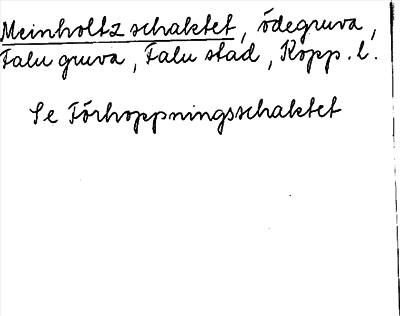 Meinholtz schaktet, ödegruva,
Falu gruva, Falu stad, Kopp. l.
Se Förhoppningsschaktet